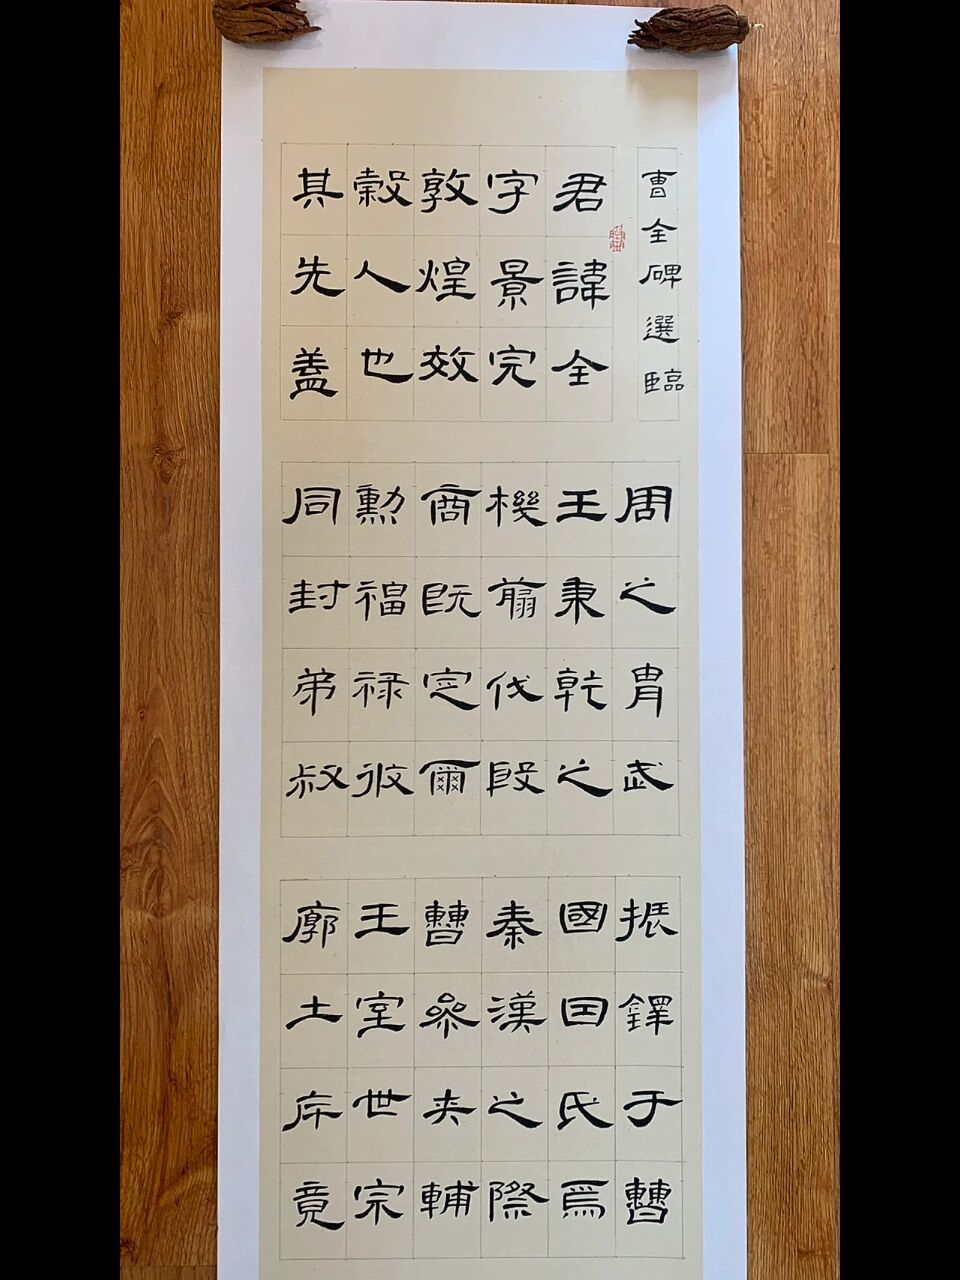 曹全碑選臨
君諱全
字景完
敦煌效
穀人也
其先盖
周之胄武
王秉乾之
機翦伐殷
商既定爾
勳福禄彼
同封弟叔
振鐸于曹
國因氏焉
秦漢之際
曹參夾輔
王室世宗
廓土斥竟